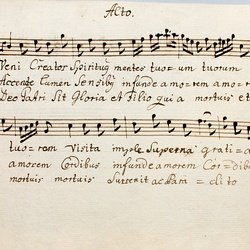 Alto.
Veni Creator Spiritus mentes tuor um tuorum
Accende Lumen Sensibq infunde amorem amo rem
Deo Patri Sit Gloria et Filio qui a mortuis et
tuo rem Visita imple Superna grati a
amorem Cordibus infunde amorem Cor dibus
mortuis mortuis Surrexit ac Para clito